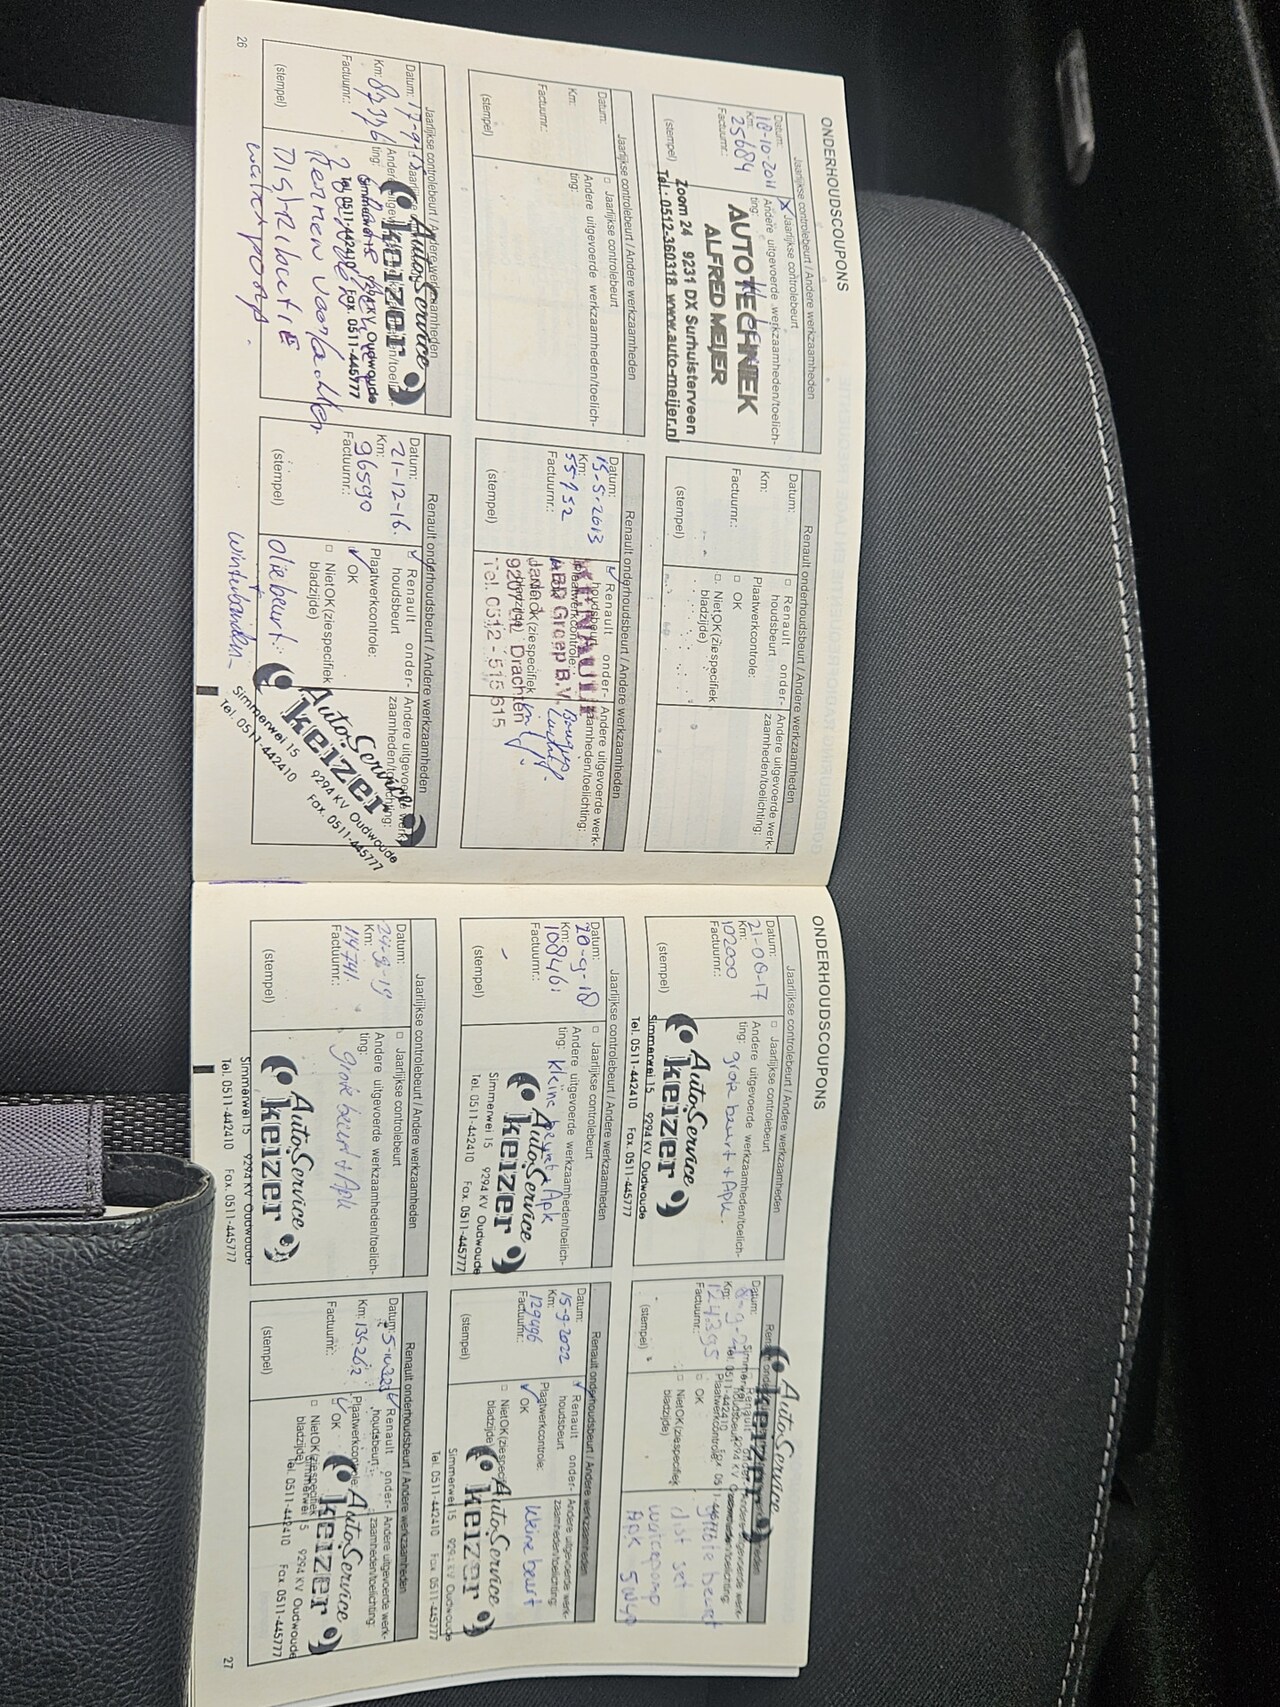 ONDERHOUDSCOUPONS
Jaarlijkse controlebeurt / Andere werkzaamheden
Datum:
18-10-2011
Km:
25684
Factuurnr.:
(stempel)
Jaarlijkse controlebeurt
Andere uitgevoerde werkzaamheden/toelich-
ting:
AUTOTECHNIEK
ALFRED MEIJER
Zoom 24 9231 DX Surhuisterveen
Tel.: 0512-360318 www.auto-meijer.nl
Renault onderhoudsbeurt / Andere werkzaamheden
Datum:
Km:
Factuurnr.:
(stempel)
□ Renault onder-
houdsbeurt
Plaatwerkcontrole:
□ OK
□ Niet OK (zie specifiek
bladzijde)
Andere uitgevoerde werk-
zaamheden/toelichting:
Jaarlijkse controlebeurt / Andere werkzaamheden
Datum:
Km:
Factuurnr.:
(stempel)
□ Jaarlijkse controlebeurt
Andere uitgevoerde werkzaamheden/toelich-
ting:
Renault onderhoudsbeurt / Andere werkzaamheden
Datum:
15-5-2013
Km:
55-152
Factuurnr.:
(stempel)
Renault onder-
houdsbeurt
RENAULT
ABD Groep B.V.
Drachten
Tel. 0512 - 515615
Andere uitgevoerde werk-
zaamheden/toelichting:
Jaarlijkse controlebeurt / Andere werkzaamheden
Datum:
Km:
87776
Factuurnr.:
(stempel)
AutoService
keizer
9294 KV Oudwoude
Tel. 0511-442410 Fax. 0511-445777
Remmen voor/achter
DISTRIBUTIE
waterpomp.
Renault onderhoudsbeurt / Andere werkzaamheden
Datum:
21-12-16.
Km:
96590
Factuurnr.:
(stempel)
Renault onder-
houdsbeurt
Plaatwerkcontrole:
OK
□ Niet OK (zie specifiek
bladzijde)
Andere uitgevoerde werk-
zaamheden/toelichting:
oliebeurt
+
winterbanden
AutoService
keizer
Simmerwei 15 9294 KV Oudwoude
Tel. 0511-442410 Fax. 0511-445777
26
ONDERHOUDSCOUPONS
Jaarlijkse controlebeurt / Andere werkzaamheden
Datum:
21-06-17
Km:
102000
Factuurnr.:
(stempel)
□ Jaarlijkse controlebeurt
Andere uitgevoerde werkzaamheden/toelich-
ting: grote beurt + Apk.
AutoService
keizer
Simmerwei 15 9294 KV Oudwoude
Tel. 0511-442410 Fax. 0511-445777
Datum:
Km:
124395
Factuurnr.:
(stempel)
□ OK
□ Niet OK (zie specifiek
bladzijde)
AutoService
keizer
grote beurt
dist set
waterpomp
APK 5W40
Jaarlijkse controlebeurt / Andere werkzaamheden
Datum:
20-9-18
Km:
108461
Factuurnr.:
(stempel)
□ Jaarlijkse controlebeurt
Andere uitgevoerde werkzaamheden/toelich-
ting: kleine beurt + Apk
AutoService
keizer
Simmerwei 15 9294 KV Oudwoude
Tel. 0511-442410 Fax. 0511-445777
Renault onderhoudsbeurt / Andere werkzaamheden
Datum:
15-9-2022
Km:
129496
Factuurnr.:
(stempel)
Renault onder-
houdsbeurt
Plaatwerkcontrole:
OK
□ Niet OK (zie specifiek
bladzijde)
Andere uitgevoerde werk-
zaamheden/toelichting:
kleine beurt
AutoService
keizer
Simmerwei 15 9294 KV Oudwoude
Tel. 0511-442410 Fax. 0511-445777
Jaarlijkse controlebeurt / Andere werkzaamheden
Datum:
Km:
114741
Factuurnr.:
(stempel)
□ Jaarlijkse controlebeurt
Andere uitgevoerde werkzaamheden/toelich-
ting:
grote beurt + Apk
AutoService
keizer
Simmerwei 15 9294 KV Oudwoude
Tel. 0511-442410 Fax. 0511-445777
Renault onderhoudsbeurt / Andere werkzaamheden
Datum:
Km: 134262
Factuurnr.:
(stempel)
Renault onder-
houdsbeurt
Plaatwerkcontrole:
OK
□ Niet OK (zie specifiek
bladzijde)
Andere uitgevoerde werk-
zaamheden/toelichting:
AutoService
keizer
Simmerwei 15 9294 KV Oudwoude
Tel. 0511-442410 Fax. 0511-445777
27